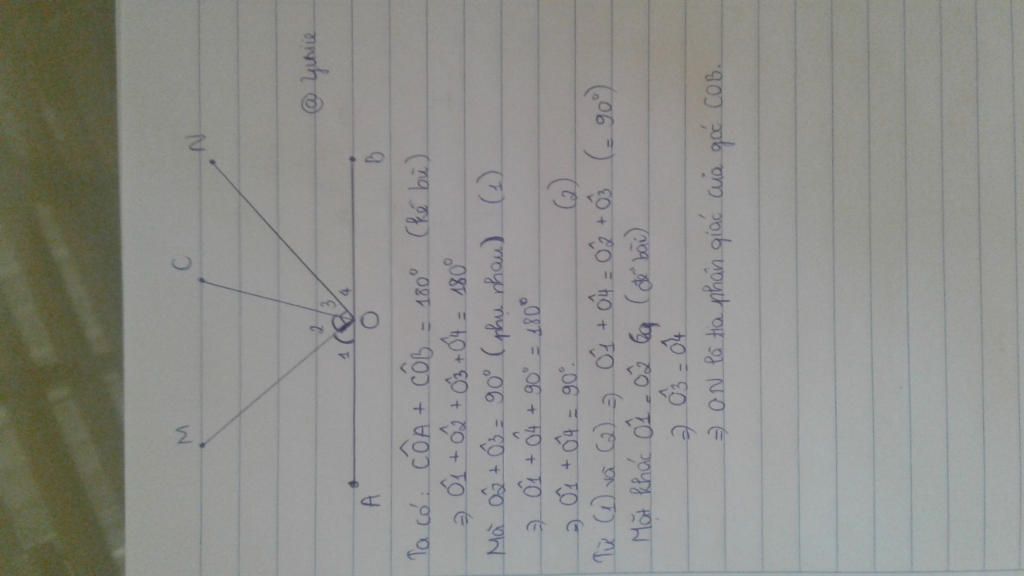 @ Yumie
M C N
2 3
1 4
A O B
Ta có: CÔA + CÔB = 180° (kề bù)
=> Ô1 + Ô2 + Ô3 + Ô4 = 180°
Mà Ô2 + Ô3 = 90° (phụ nhau) (1)
=> Ô1 + Ô4 + 90° = 180°
=> Ô1 + Ô4 = 90°. (2)
Từ (1) và (2) => Ô1 + Ô4 = Ô2 + Ô3 (= 90°)
Mặt khác Ô1 = Ô2 (đề bài)
=> Ô3 = Ô4
=> ON là tia phân giác của góc COB.